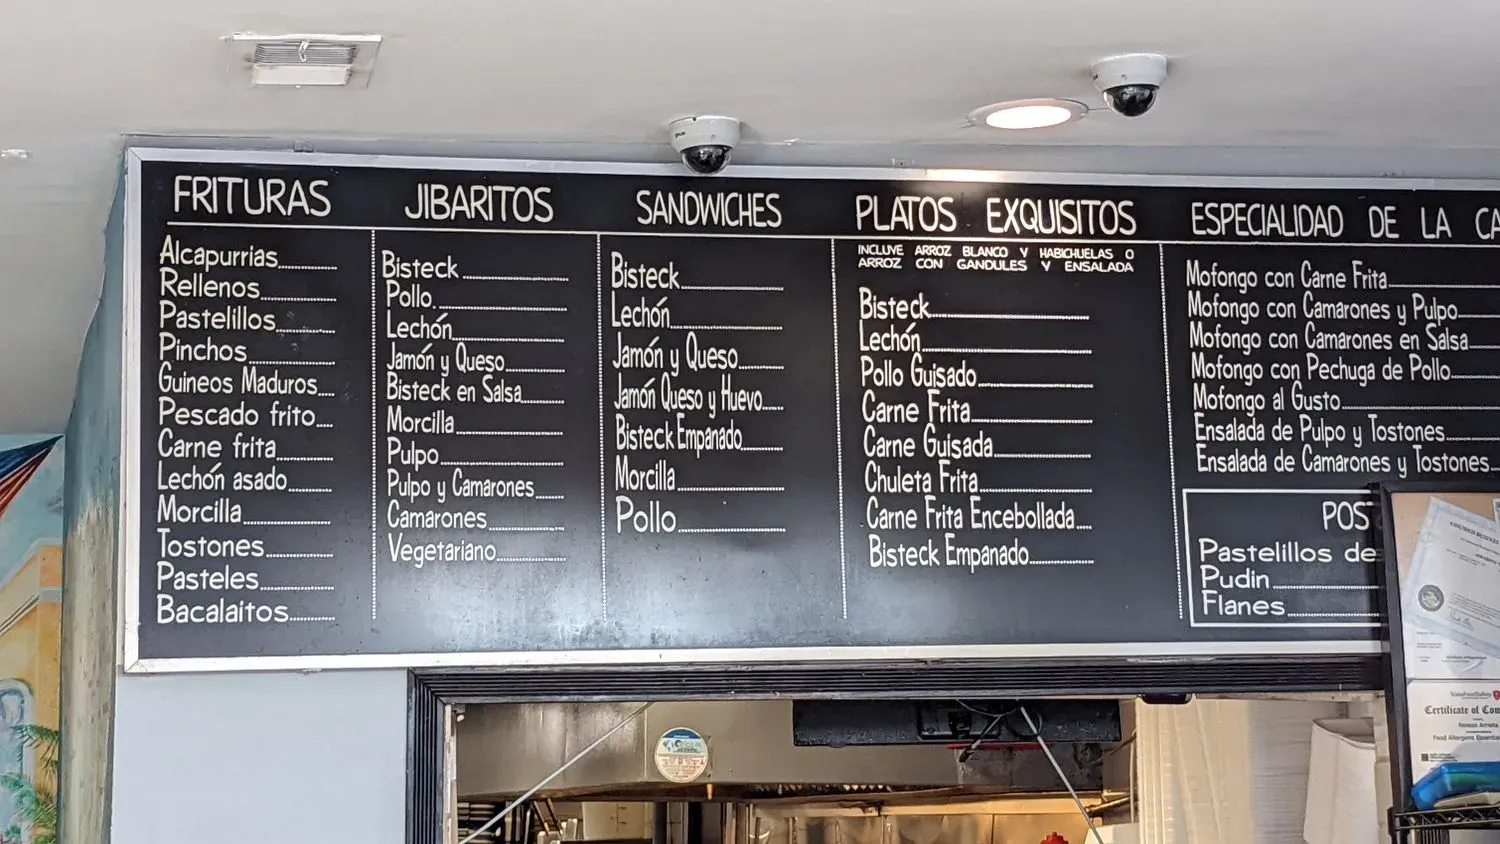 FRITURAS
Alcapurrias
Rellenos
Pastelillos
Pinchos
Guineos Maduros
Pescado frito
Carne frita
Lechón asado
Morcilla
Tostones
Pasteles
Bacalaitos
JIBARITOS
Bisteck
Pollo.
Lechón
Jamón y Queso
Bisteck en Salsa
Morcilla
Pulpo
Pulpo y Camarones
Camarones
Vegetariano
SANDWICHES
Bisteck
Lechón
Jamón y Queso
Jamón Queso y Huevo
Bisteck Empanado
Morcilla
Pollo
PLATOS EXQUISITOS
INCLUYE ARROZ BLANCO Y HABICHUELAS O
ARROZ CON GANDULES Y ENSALADA
Bisteck
Lechón
Pollo Guisado
Carne Frita
Carne Guisada
Chuleta Frita
Carne Frita Encebollada
Bisteck Empanado
ESPECIALIDAD DE LA CA
Mofongo con Carne Frita
Mofongo con Camarones y Pulpo
Mofongo con Camarones en Salsa
Mofongo con Pechuga de Pollo
Mofongo al Gusto
Ensalada de Pulpo y Tostones
Ensalada de Camarones y Tostones
POST
Pastelillos de
Pudin
Flanes
Certificate of Com
Food Allergens Essential